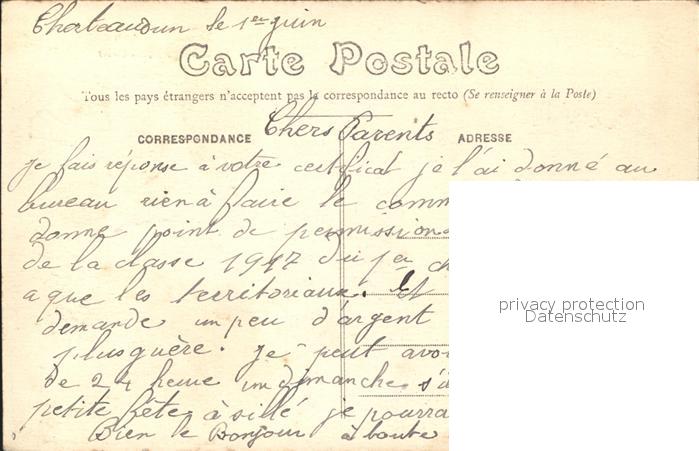 Chateaudun le 1er juin
Carte Postale
Tous les pays étrangers n'acceptent pas la correspondance au recto (Se renseigner à la Poste)
Chers Parents
CORRESPONDANCE ADRESSE
je fais réponse à votre certificat je l'ai donné au
bureau rien à faire le comm
donne point de permission
de la classe 1917 du 1er ch
a que les territoriaux. Et
demande un peu d'argent
plus guère. je peut avoi
de 24 heure un dimanche s'i
petite fête à sillé je pourra
Bien le Bonjour à toute
privacy protection
Datenschutz